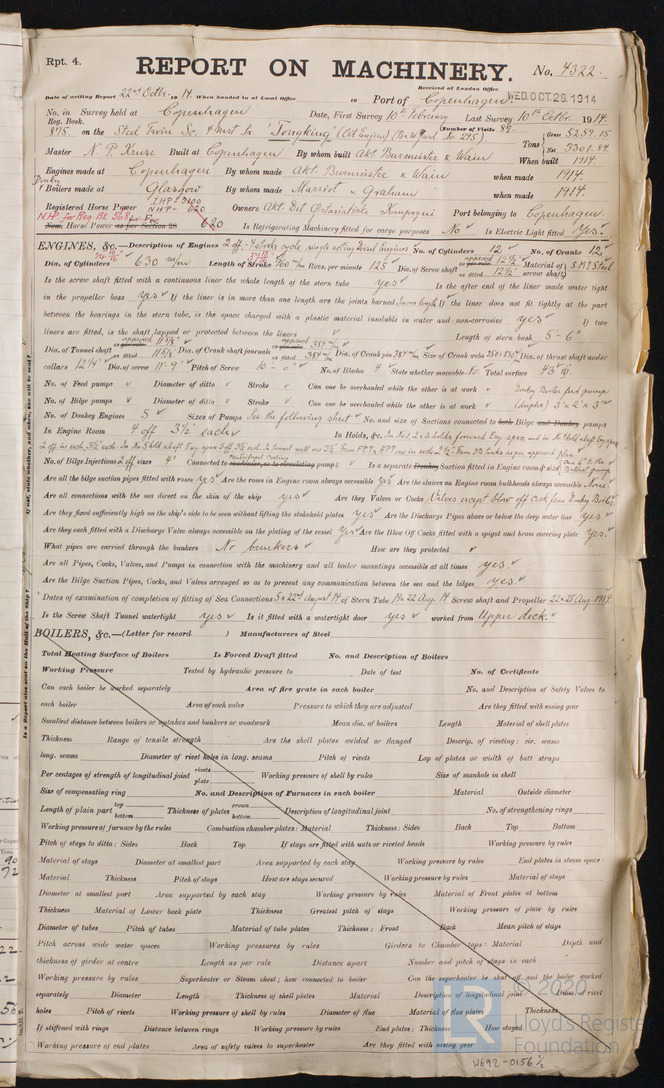 Rpt. 4.
REPORT ON MACHINERY.
No. 4322.
Received at London Office
WED. OCT. 28. 1914
Date of writing Report 22nd Octbr. 19 14 When handed in at Local Office 19 Port of Copenhagen
No. in Survey held at Copenhagen Date, First Survey 10th February Last Survey 10th Octbr. 1914
Reg. Book. (Number of Visits 89.
875. on the Steel Twin Sc. 4 Mast Sr. "Tongking" (Oil Engine) (B&W Yard No. 295) Tons Gross 5257.15 Net 3301.84
Master N. P. Kruse Built at Copenhagen By whom built Akt. Burmeister & Wain When built 1914
Engines made at Copenhagen By whom made Akt. Burmeister & Wain when made 1914.
Donkey Boilers made at Glasgow By whom made Marriot & Graham when made 1914.
Registered Horse Power IHP 3100 NHP - 620 Owners Akt. Det Østasiatiske Kompagni Port belonging to Copenhagen
N.H.P. for Reg. Bk 568
Nom. Horse Power as per Section 28 620 Is Refrigerating Machinery fitted for cargo purposes No Is Electric Light fitted Yes.
ENGINES, &c.—Description of Engines 2 off - 4 stroke cycle single acting Diesel Engines No. of Cylinders 12 No. of Cranks 12
Dia. of Cylinders 630 m/m Length of Stroke 960 m/m Revs. per minute 125 Dia. of Screw shaft as fitted 12½" Material of screw shaft S.M. Steel
Is the screw shaft fitted with a continuous liner the whole length of the stern tube yes Is the after end of the liner made water tight
in the propeller boss yes If the liner is in more than one length are the joints burned In one length If the liner does not fit tightly at the part
between the bearings in the stern tube, is the space charged with a plastic material insoluble in water and non-corrosive yes If two
liners are fitted, is the shaft lapped or protected between the liners ✓ Length of stern bush 5'-6"
Dia. of Tunnel shaft as fitted 11 5/8" Dia. of Crank shaft journals as fitted 384 m/m Dia. of Crank pin 384 m/m Size of Crank webs Dia. of thrust shaft under
collars 12¼" Dia. of screw 11'-9" Pitch of Screw 10'-0" No. of Blades 4 State whether moveable No Total surface 43
No. of Feed pumps ✓ Diameter of ditto ✓ Stroke ✓ Can one be overhauled while the other is at work ✓ Donkey Boiler feed pump
No. of Bilge pumps ✓ Diameter of ditto ✓ Stroke ✓ Can one be overhauled while the other is at work ✓ (duplex) 3" x 2" x 3"
No. of Donkey Engines 5 Sizes of Pumps See the following sheet No. and size of Suctions connected to both Bilge and Donkey pumps
In Engine Room 4 off 3½" each In Holds, &c. In No. 1, 2 & 3 holds forward Eng. space and in No. 4 hold aft Eng. space
2 off in each, 3½" each.
No. of Bilge Injections 2 off sizes 4" Connected to condenser, or to circulating pump ✓ Is a separate Donkey Suction fitted in Engine room & size
Are all the bilge suction pipes fitted with roses yes Are the roses in Engine room always accessible yes Are the sluices on Engine room bulkheads always accessible None
Are all connections with the sea direct on the skin of the ship yes Are they Valves or Cocks Valves except blow off Cock from Donkey Boiler
Are they fixed sufficiently high on the ship's side to be seen without lifting the stokehold plates yes Are the Discharge Pipes above or below the deep water line yes
Are they each fitted with a Discharge Valve always accessible on the plating of the vessel yes Are the Blow Off Cocks fitted with a spigot and brass covering plate yes.
What pipes are carried through the bunkers No bunkers ✓ How are they protected ✓
Are all Pipes, Cocks, Valves, and Pumps in connection with the machinery and all boiler mountings accessible at all times yes.
Are the Bilge Suction Pipes, Cocks, and Valves arranged so as to prevent any communication between the sea and the bilges yes.
Dates of examination of completion of fitting of Sea Connections 5 & 22nd August 14 of Stern Tube 19 & 22 Aug. 14 Screw shaft and Propeller 22 & 25 Aug. 1914
Is the Screw Shaft Tunnel watertight yes Is it fitted with a watertight door yes worked from Upper deck.
BOILERS, &c.—(Letter for record ) Manufacturers of Steel
Total Heating Surface of Boilers Is Forced Draft fitted No. and Description of Boilers
Working Pressure Tested by hydraulic pressure to Date of test No. of Certificate
Can each boiler be worked separately Area of fire grate in each boiler No. and Description of Safety Valves to
each boiler Area of each valve Pressure to which they are adjusted Are they fitted with easing gear
Smallest distance between boilers or uptakes and bunkers or woodwork Mean dia. of boilers Length Material of shell plates
Thickness Range of tensile strength Are the shell plates welded or flanged Descrip. of riveting: cir. seams
long. seams Diameter of rivet holes in long. seams Pitch of rivets Lap of plates or width of butt straps
Per centages of strength of longitudinal joint rivets plate Working pressure of shell by rules Size of manhole in shell
Size of compensating ring No. and Description of Furnaces in each boiler Material Outside diameter
Length of plain part top bottom Thickness of plates crown bottom Description of longitudinal joint No. of strengthening rings
Working pressure of furnace by the rules Combustion chamber plates: Material Thickness: Sides Back Top Bottom
Pitch of stays to ditto: Sides Back Top If stays are fitted with nuts or riveted heads Working pressure by rules
Material of stays Diameter at smallest part Area supported by each stay Working pressure by rules End plates in steam space:
Material Thickness Pitch of stays How are stays secured Working pressure by rules Material of stays
Diameter at smallest part Area supported by each stay Working pressure by rules Material of Front plates at bottom
Thickness Material of Lower back plate Thickness Greatest pitch of stays Working pressure of plate by rules
Diameter of tubes Pitch of tubes Material of tube plates Thickness: Front Back Mean pitch of stays
Pitch across wide water spaces Working pressures by rules Girders to Chamber tops: Material Depth and
thickness of girder at centre Length as per rule Distance apart Number and pitch of stays in each
Working pressure by rules Superheater or Steam chest; how connected to boiler Can the superheater be shut off and the boiler worked
separately Diameter Length Thickness of shell plates Material Description of longitudinal joint Diam. of rivet
holes Pitch of rivets Working pressure of shell by rules Diameter of flue Material of flue plates Thickness
If stiffened with rings Distance between rings Working pressure by rules End plates: Thickness How stayed
Working pressure of end plates Area of safety valves to superheater Are they fitted with easing gear
© 2020
Lloyd's Register
Foundation
W692-0156½